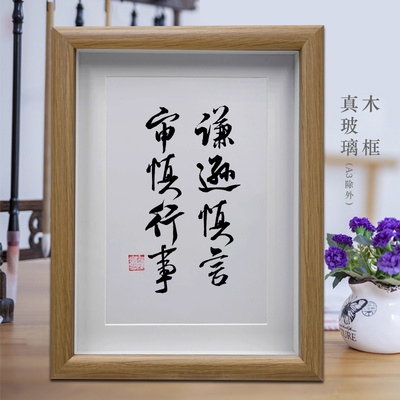 谦逊慎言
审慎行事
木框
真玻璃(A3除外)